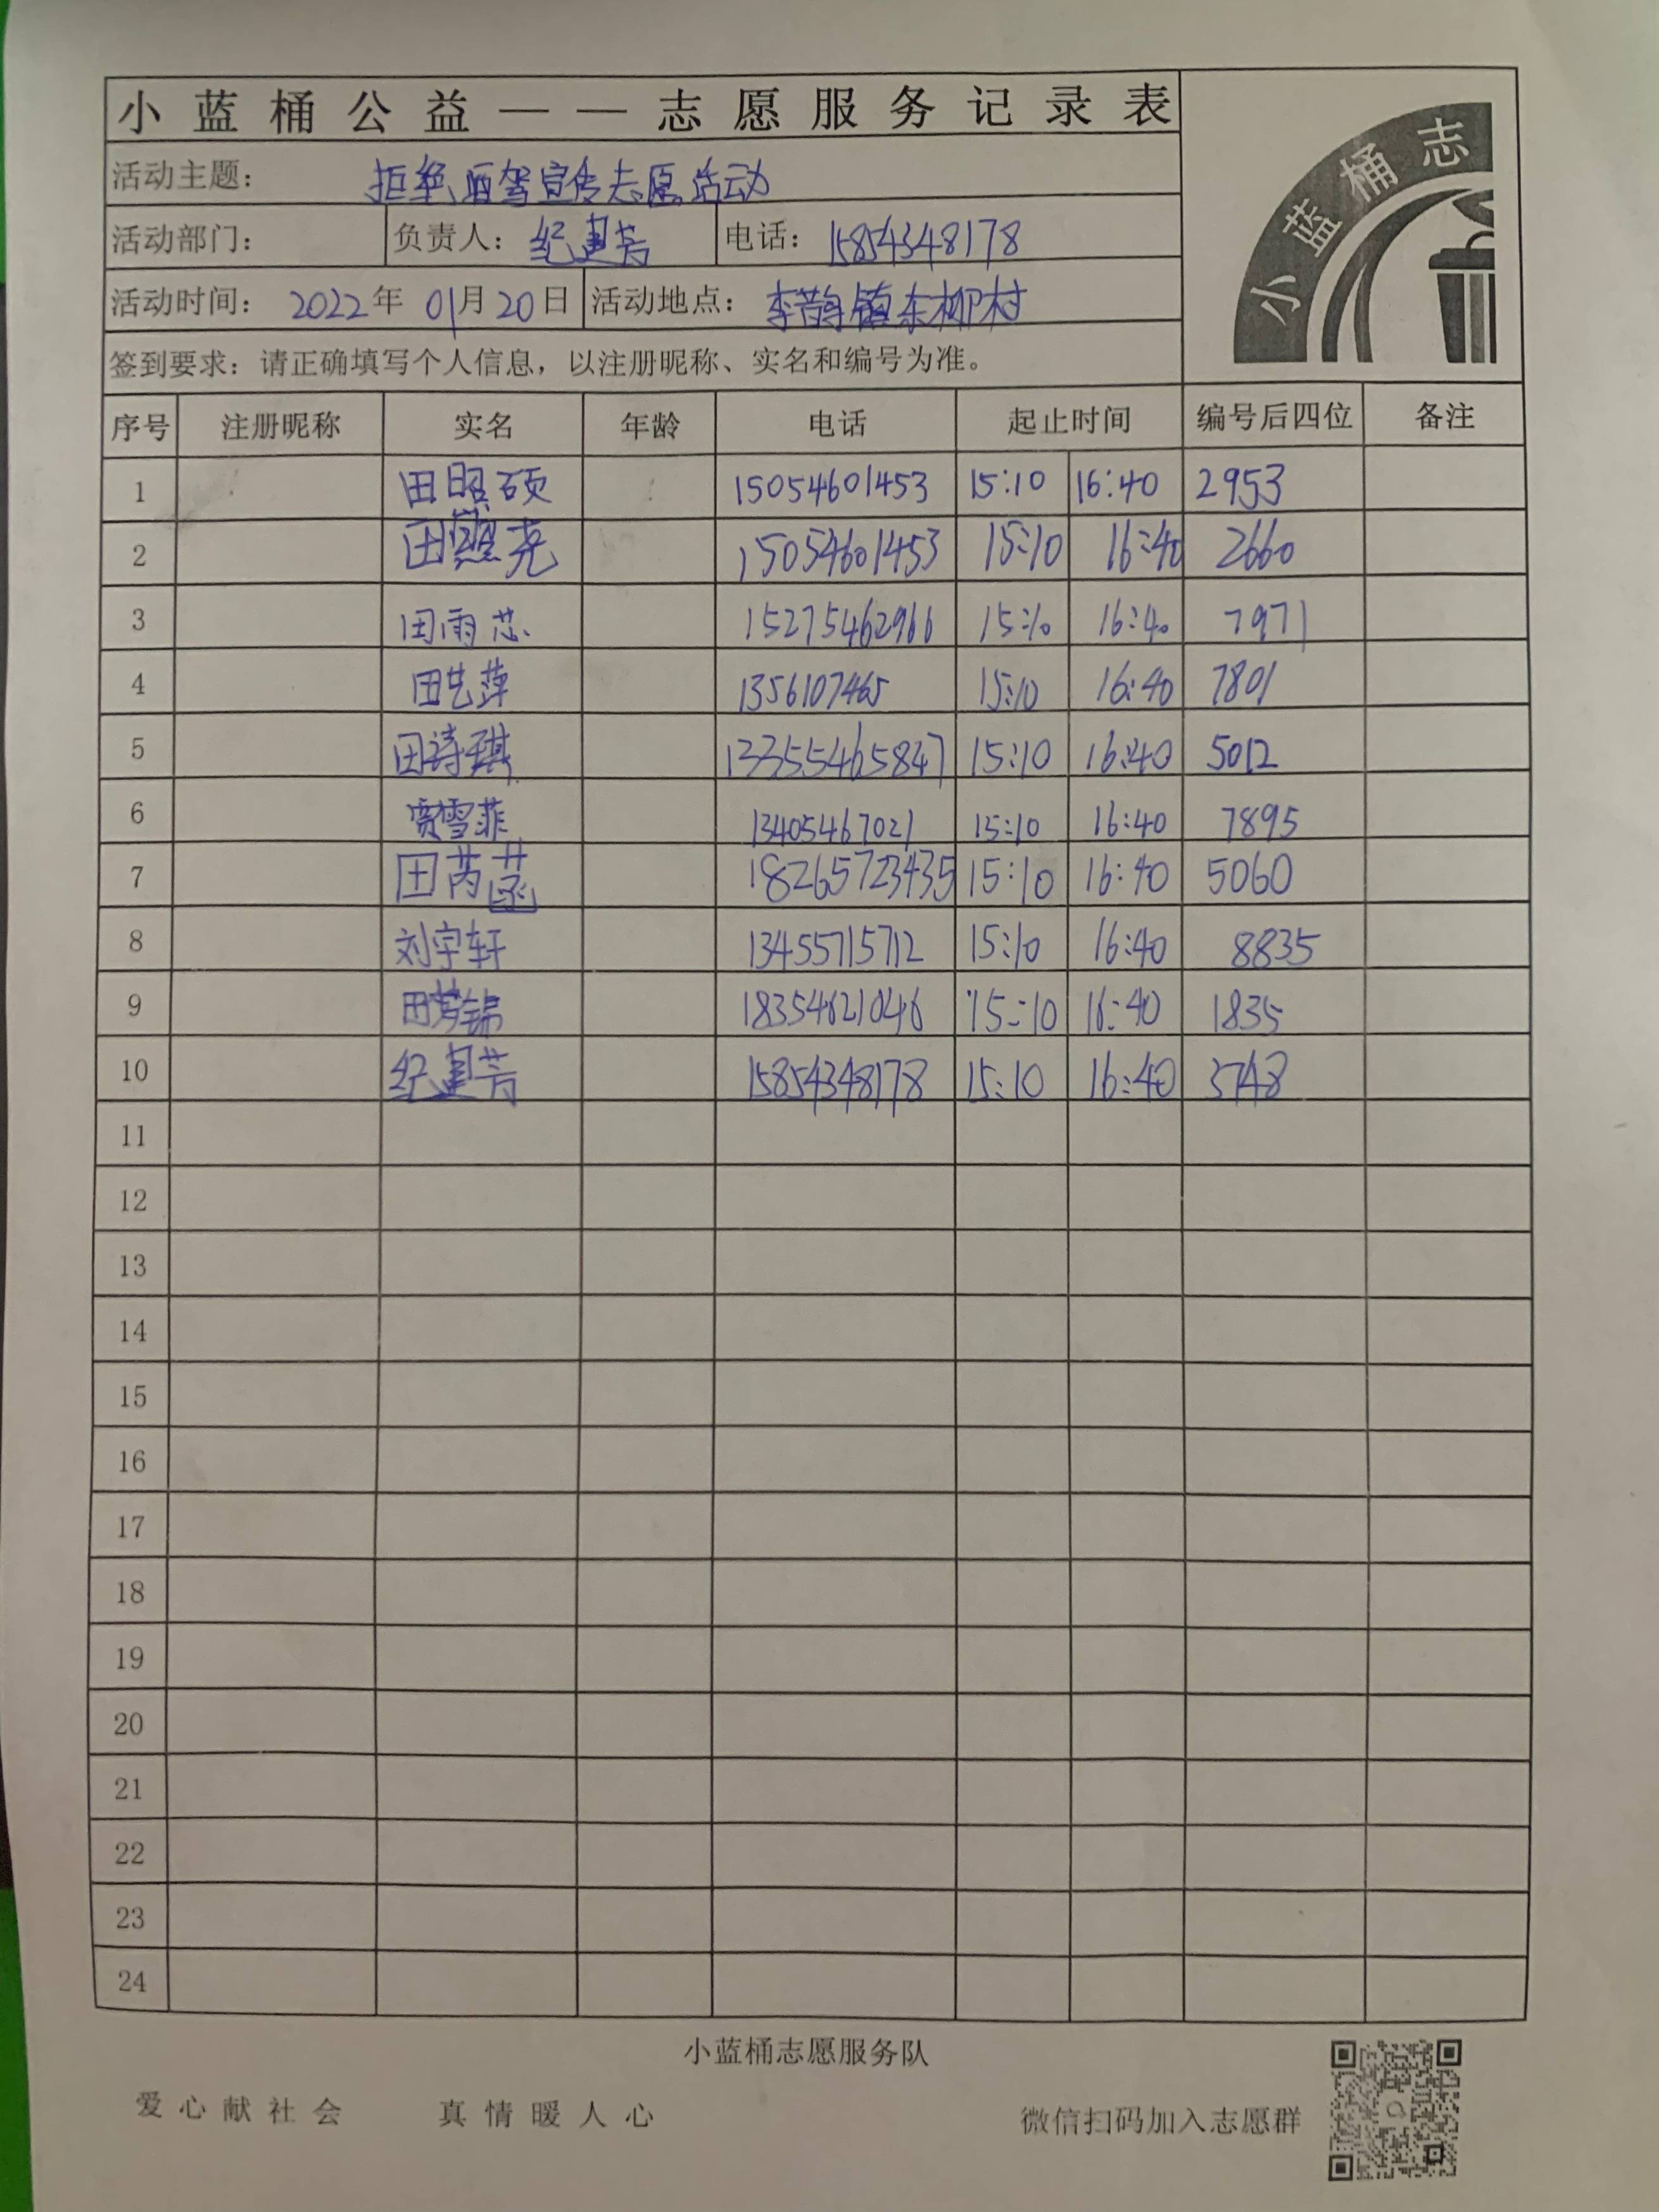 小蓝桶公益——志愿服务记录表
小蓝桶志
活动主题: 拒绝酒驾宣传志愿活动
活动部门: 负责人: 纪建芳 电话: 15854348178
活动时间: 2022年 01月20日 活动地点: 李鹊镇东柳村
签到要求: 请正确填写个人信息, 以注册昵称、实名和编号为准。
序号 注册昵称 实名 年龄 电话 起止时间 编号后四位 备注
1 田昭硕 15054601453 15:10 16:40 2953
2 田照尧 15054601453 15:10 16:40 2660
3 田雨芯 15275462966 15:10 16:40 7971
4 田艺萍 1356107465 15:10 16:40 7801
5 田诗琪 13355465847 15:10 16:40 5012
6 雪菲 13405467021 15:10 16:40 7895
7 田芮菡 18265723435 15:10 16:40 5060
8 刘宇轩 13455715712 15:10 16:40 8835
9 田梦锦 18354621046 15:10 16:40 1835
10 纪建芳 15854348178 15:10 16:40 3748
11
12
13
14
15
16
17
18
19
20
21
22
23
24
小蓝桶志愿服务队
爱心献社会 真情暖人心 微信扫码加入志愿群